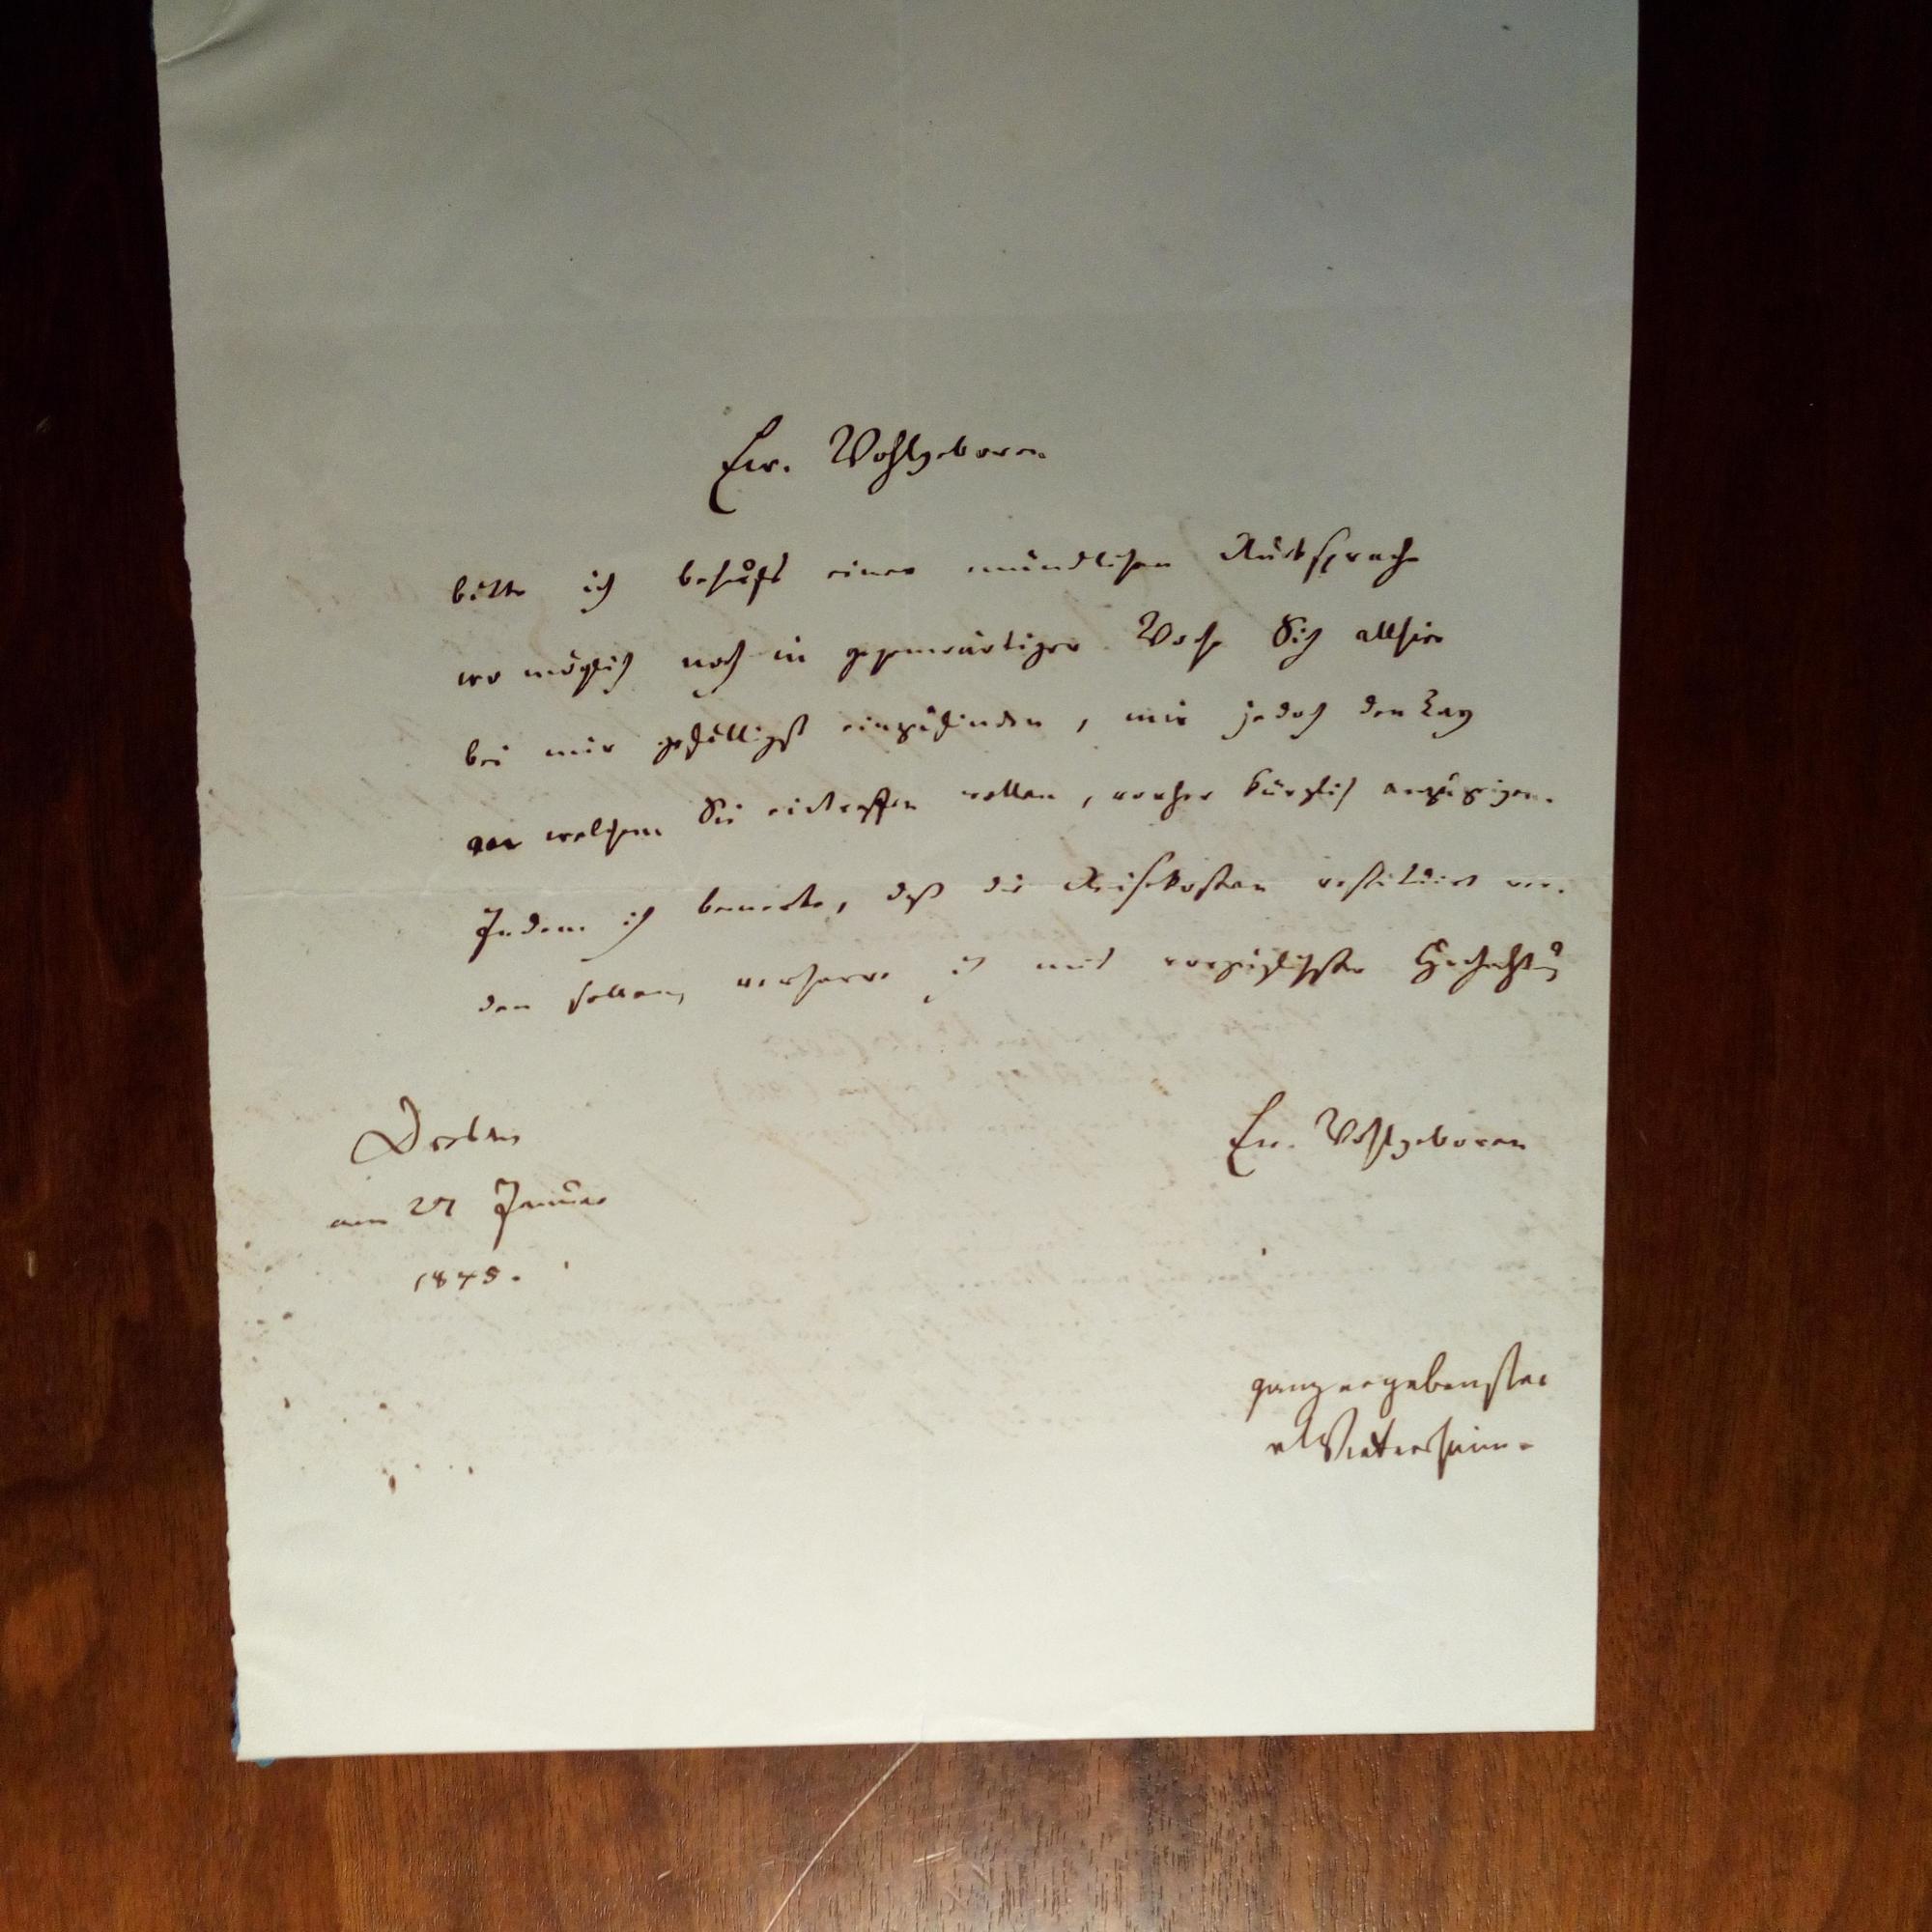 Ew. Wohlgeboren
bitte ich behufs einer mündlichen Rücksprache
wo möglich noch in gegenwärtiger Woche Sich allhier
bei mir gefälligst einzufinden, mir jedoch den Tag
an welchem Sie eintreffen wollen, vorher kürzlich anzuzeigen.
Indem ich bemerke, daß die Reisekosten restituirt wer-
den sollen, verharre ich mit vorzüglichster Hochachtung
Ew. Wohlgeboren
Dresden
am 27 Januar
1845.
ganz ergebenster
vWietersheim.